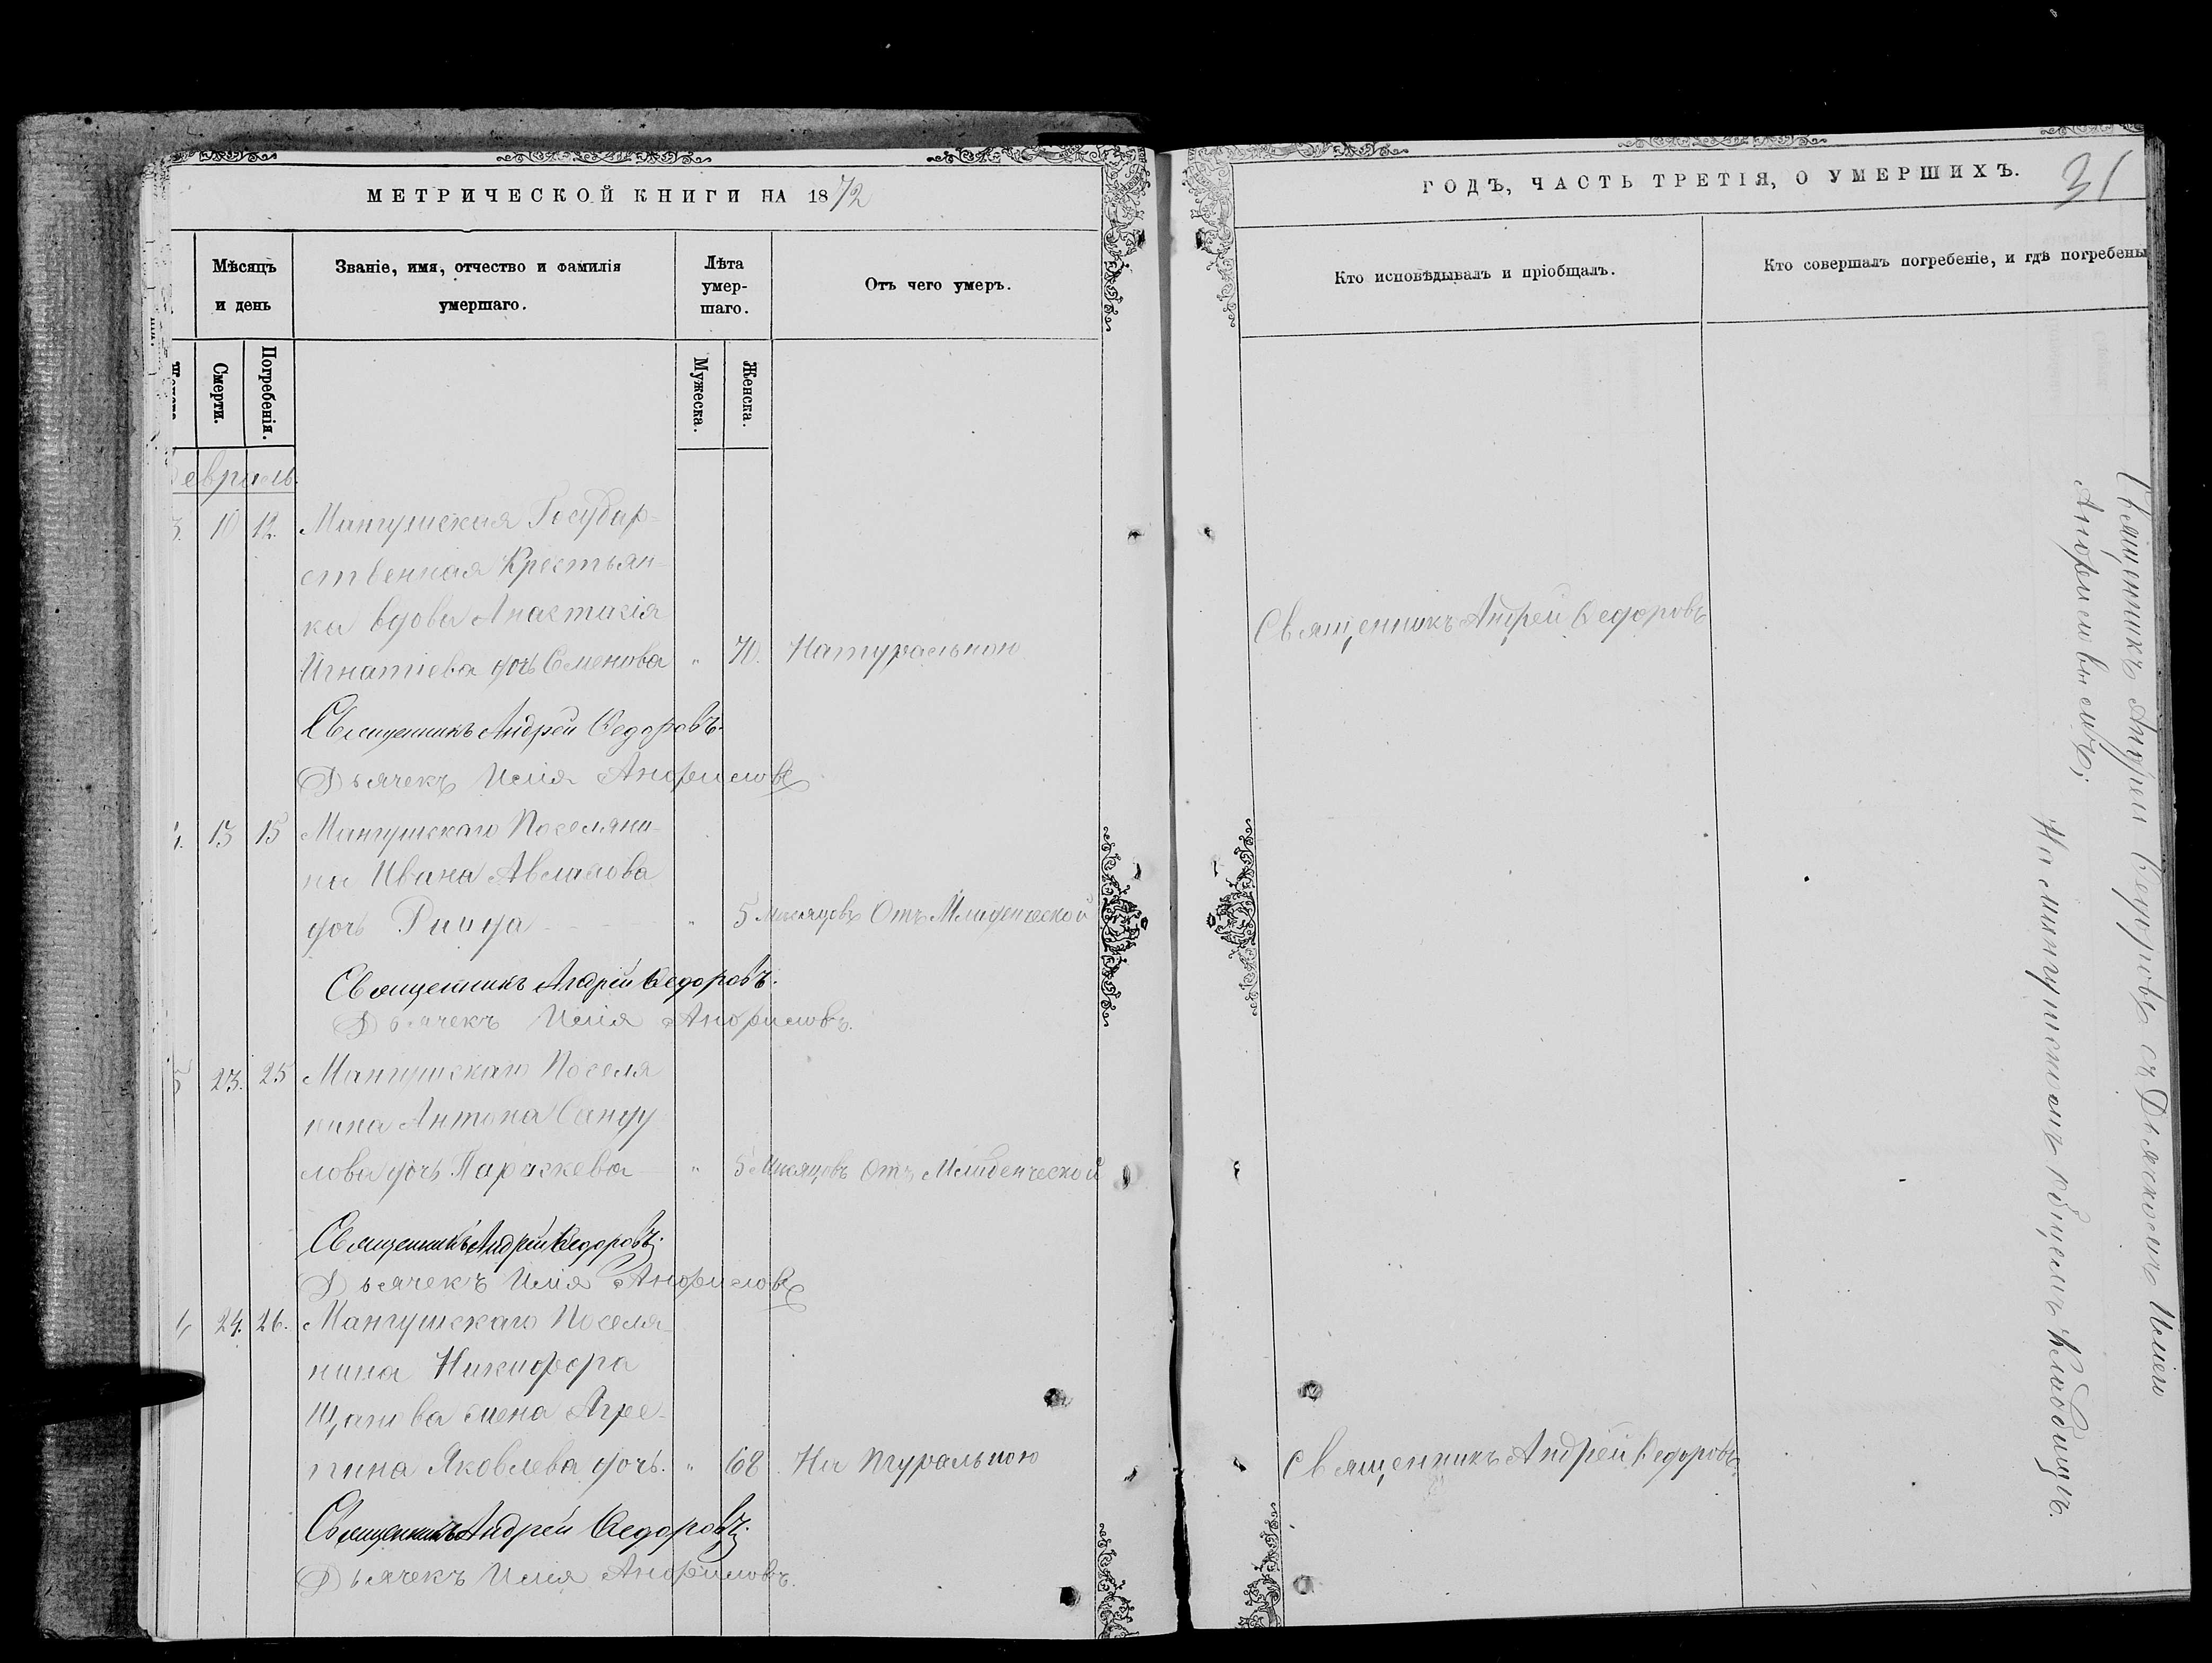 МЕТРИЧЕСКОЙ КНИГИ НА 1872
Мѣсяцъ и день
Званіе, имя, отчество и фамилія умершаго.
Лѣта умер-
шаго.
Отъ чего умеръ.
Смерти.
Погребенія.
Мужеска.
Женска.
евраль.
3. 10 12. Мангушская Государ-
ственная Крестьян-
ка вдова Анастасія
Игнатіева дочь Семенова " 70. Натуральною
Священникъ Андрей Ѳедоровъ.
Дьячекъ Илія
13 15 Мангушскаго Поселяни-
на Ивана
дочь " 5 Мѣсяцовъ Отъ Младенческой
Священникъ Андрей Ѳедоровъ.
Дьячекъ Илія
5 23. 25 Мангушскаго Поселя
нина Антона
дочь Параскева " 5 Мѣсяцовъ Отъ Младенческой
Священникъ Андрей Ѳедоровъ.
Дьячекъ Илія
24. 26. Мангушскаго Поселя-
нина Никифора
жена Агре-
пина Яковлева дочь. " 68 Натуральною
Священникъ Андрей Ѳедоровъ.
Дьячекъ Илія
ГОДЪ, ЧАСТЬ ТРЕТІЯ, О УМЕРШИХЪ.
31
Кто исповѣдывалъ и пріобщалъ.
Кто совершалъ погребеніе, и гдѣ погребены
Священникъ Андрей Ѳедоровъ
Священникъ Андрей Ѳедоровъ.
Священникъ Андрей Ѳедоровъ съ Дьячкомъ Иліею
На мангушскомъ общемъ Кладбищѣ.